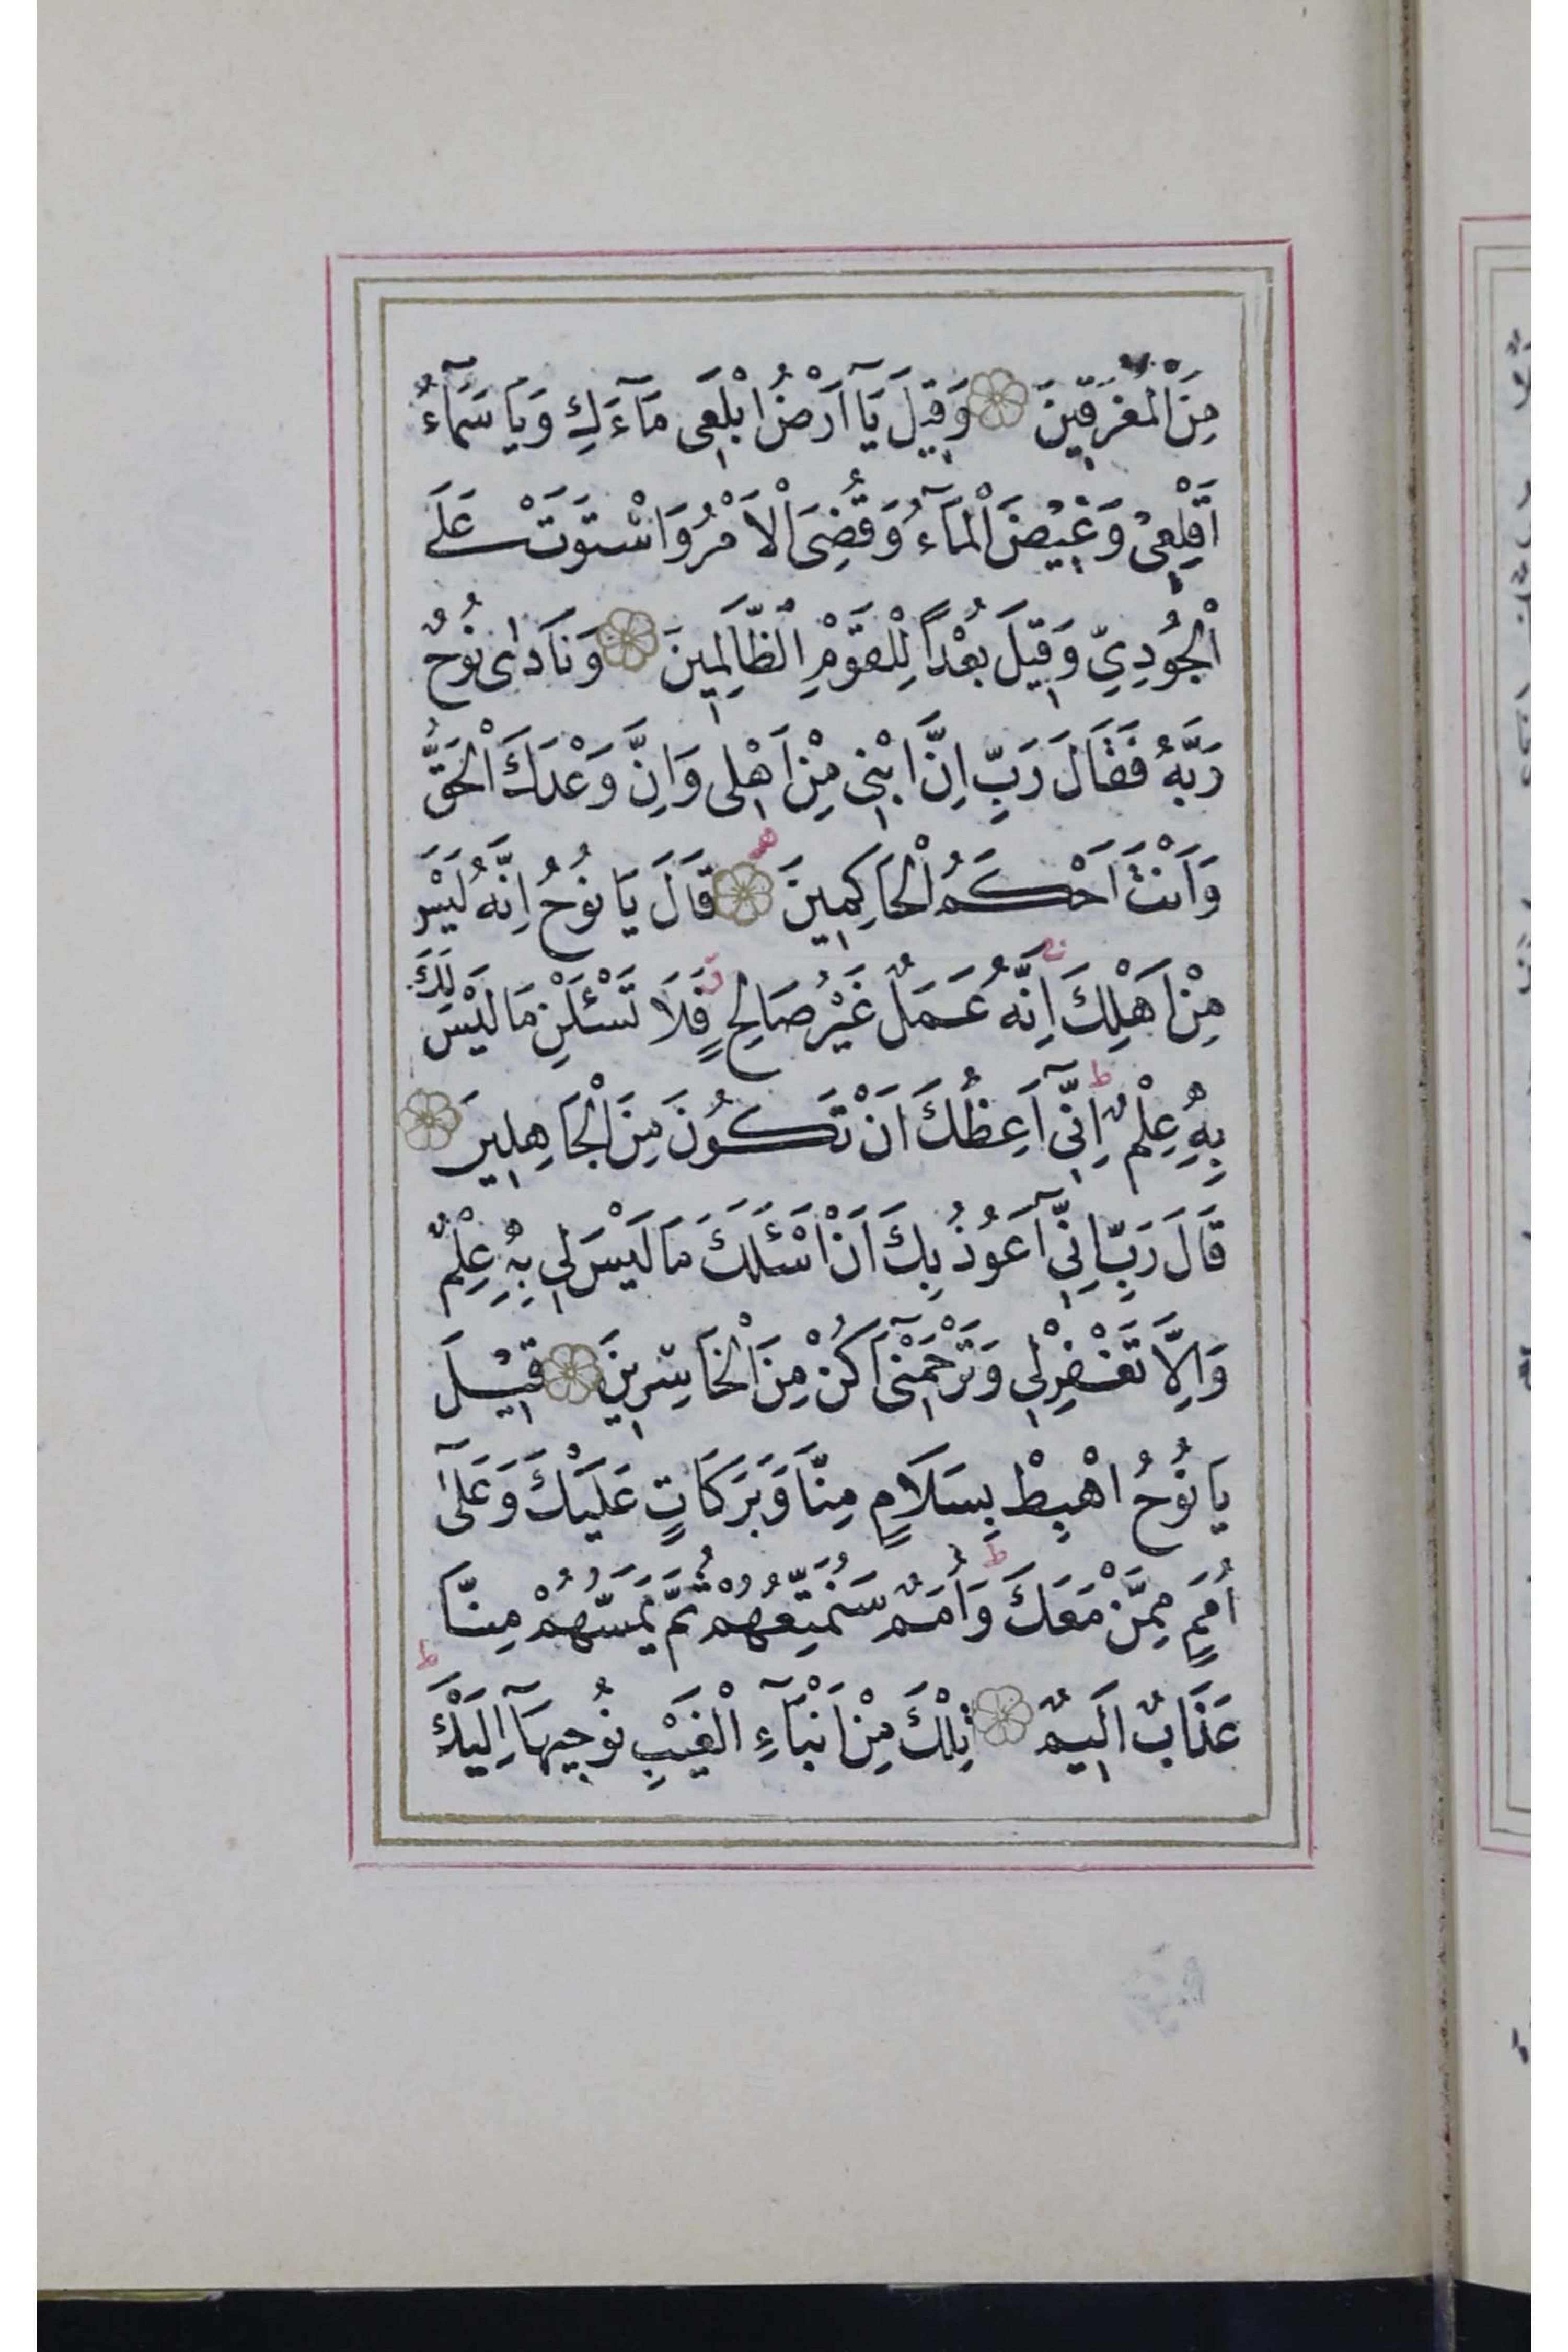 مِنَ الْمُغْرَقِينَ وَقِيلَ يَآ اَرْضُ ابْلَعِى مَآءَكِ وَيَا سَمَآءُ
اَقْلِعِىْ وَغِيْضَ الْمَآءُ وَقُضِىَ الْاَمْرُ وَاسْتَوَتْ عَلَى
الْجُودِيِّ وَقِيلَ بُعْدًا لِلْقَوْمِ الظَّالِمِينَ وَنَادٰى نُوْحٌ
رَبَّهُ فَقَالَ رَبِّ اِنَّ ابْنِى مِنْ اَهْلِى وَاِنَّ وَعْدَكَ الْحَقُّ
وَاَنْتَ اَحْكَمُ الْحَاكِمِينَ قَالَ يَا نُوْحُ اِنَّهُ لَيْسَ
مِنْ اَهْلِكَ اِنَّهُ عَمَلٌ غَيْرُ صَالِحٍ فَلَا تَسْئَلْنِ مَا لَيْسَ لَكَ
بِهِ عِلْمٌ اِنِّىٓ اَعِظُكَ اَنْ تَكُوْنَ مِنَ الْجَاهِلِينَ
قَالَ رَبِّ اِنِّىٓ اَعُوْذُ بِكَ اَنْ اَسْئَلَكَ مَا لَيْسَ لِى بِهِ عِلْمٌ
وَاِلَّا تَغْفِرْ لِى وَتَرْحَمْنِىٓ اَكُنْ مِنَ الْخَاسِرِينَ قِيْلَ
يَا نُوْحُ اهْبِطْ بِسَلَامٍ مِنَّا وَبَرَكَاتٍ عَلَيْكَ وَعَلٰىٓ
اُمَمٍ مِمَّنْ مَعَكَ وَاُمَمٌ سَنُمَتِّعُهُمْ ثُمَّ يَمَسُّهُمْ مِنَّا
عَذَابٌ اَلِيمٌ تِلْكَ مِنْ اَنْبَآءِ الْغَيْبِ نُوْحِيهَآ اِلَيْكَ